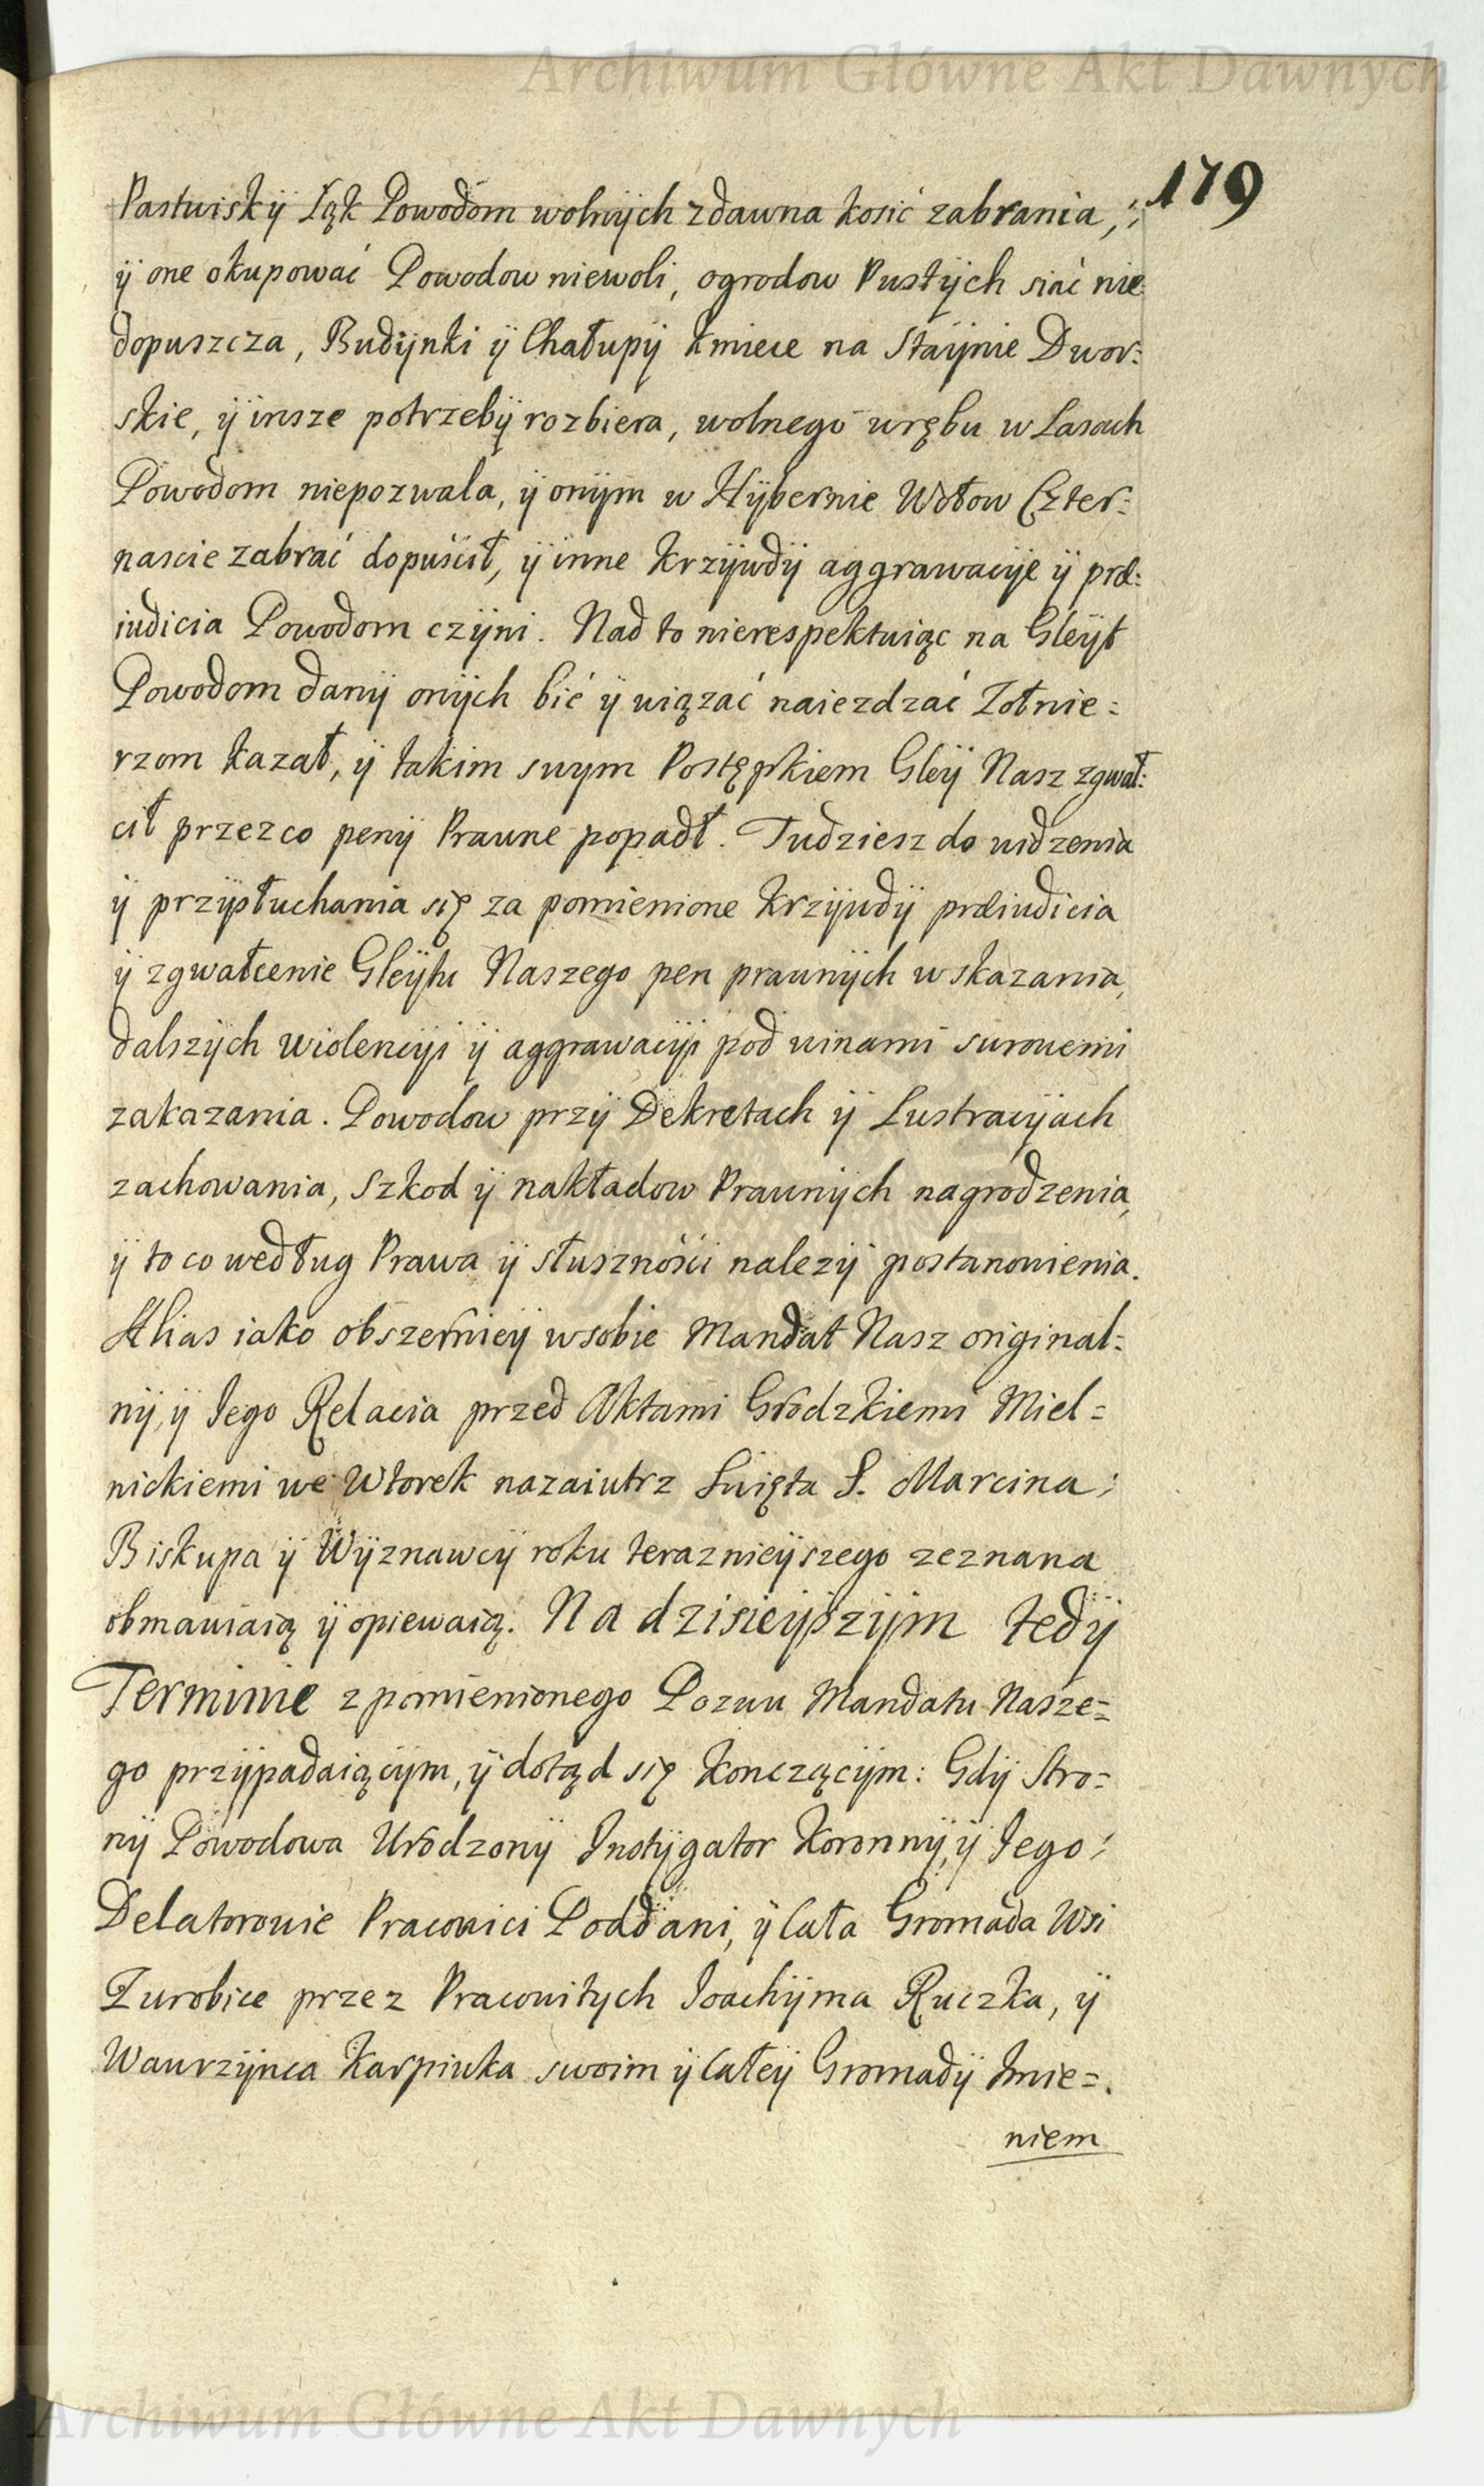 Archiwum Główne Akt Dawnych
179
Pastwisk ÿ Łąk Powodom wolnÿch zdawna kosić zabrania,
ÿ one okupować Powodow niewoli, ogrodow Pustÿch siać nie
dopuszcza, Budÿnki ÿ Chałupÿ Kmiece na Staÿnie Dwor:
skie, ÿ insze potrzebÿ rozbiera, wolnego wrębu w Lasach
Powodom niepozwala, ÿ onÿm w Hÿbernie Wołow Czter:
nascie zabrać dopuścił, ÿ inne Krzÿwdÿ aggrawacÿe ÿ præ:
iudicia Powodom czÿni. Nad to nierespektuiąc na Gleÿt
Powodom danÿ onÿch bić ÿ wiązać naiezdzać Zołnie:
rzom kazał, ÿ takim swym Postępkiem Gleÿ Nasz zgwał:
cił przez co penÿ Prawne popadł. Tudziesz do widzenia
ÿ przÿsłuchania się za pomienione Krzÿwdÿ præiudicia
ÿ zgwałcenie Gleÿtu Naszego pen prawnÿch wskazania,
dalszÿch wiolencÿi ÿ aggrawacÿi pod winami surowemi
zakazania. Powodow przÿ Dekretach ÿ Lustracÿach
zachowania, szkod ÿ nakładow Prawnÿch nagrodzenia,
ÿ to co według Prawa ÿ słuszności nalezÿ postanowienia.
Alias iako obszerniey wsobie Mandat Nasz original:
nÿ, ÿ Iego Relacia przed Aktami Grodzkiemi Miel=
nickiemi we Wtorek nazaiutrz Swięta S. Marcina
Biskupa ÿ Wÿznawcÿ roku teraznieÿszego zeznana
obmawiaią ÿ opiewaią. Na dzisieÿszÿm tedÿ
Terminie z pomienionego Pozwu Mandatu Nasze=
go przÿpadaiącÿm, ÿ dotąd się konczącÿm: Gdÿ Stro=
nÿ Powodowa Urodzonÿ Instÿgator Koronnÿ, ÿ Iego
Delatorowie Pracowici Poddani, ÿ cała Gromada Wsi
Zurobice przez Pracowitych Ioachÿma Ruczka, ÿ
Wawrzÿnca Karpiuka swoim ÿ całeÿ Gromadÿ Imie=
niem
Archiwum Główne Akt Dawnych